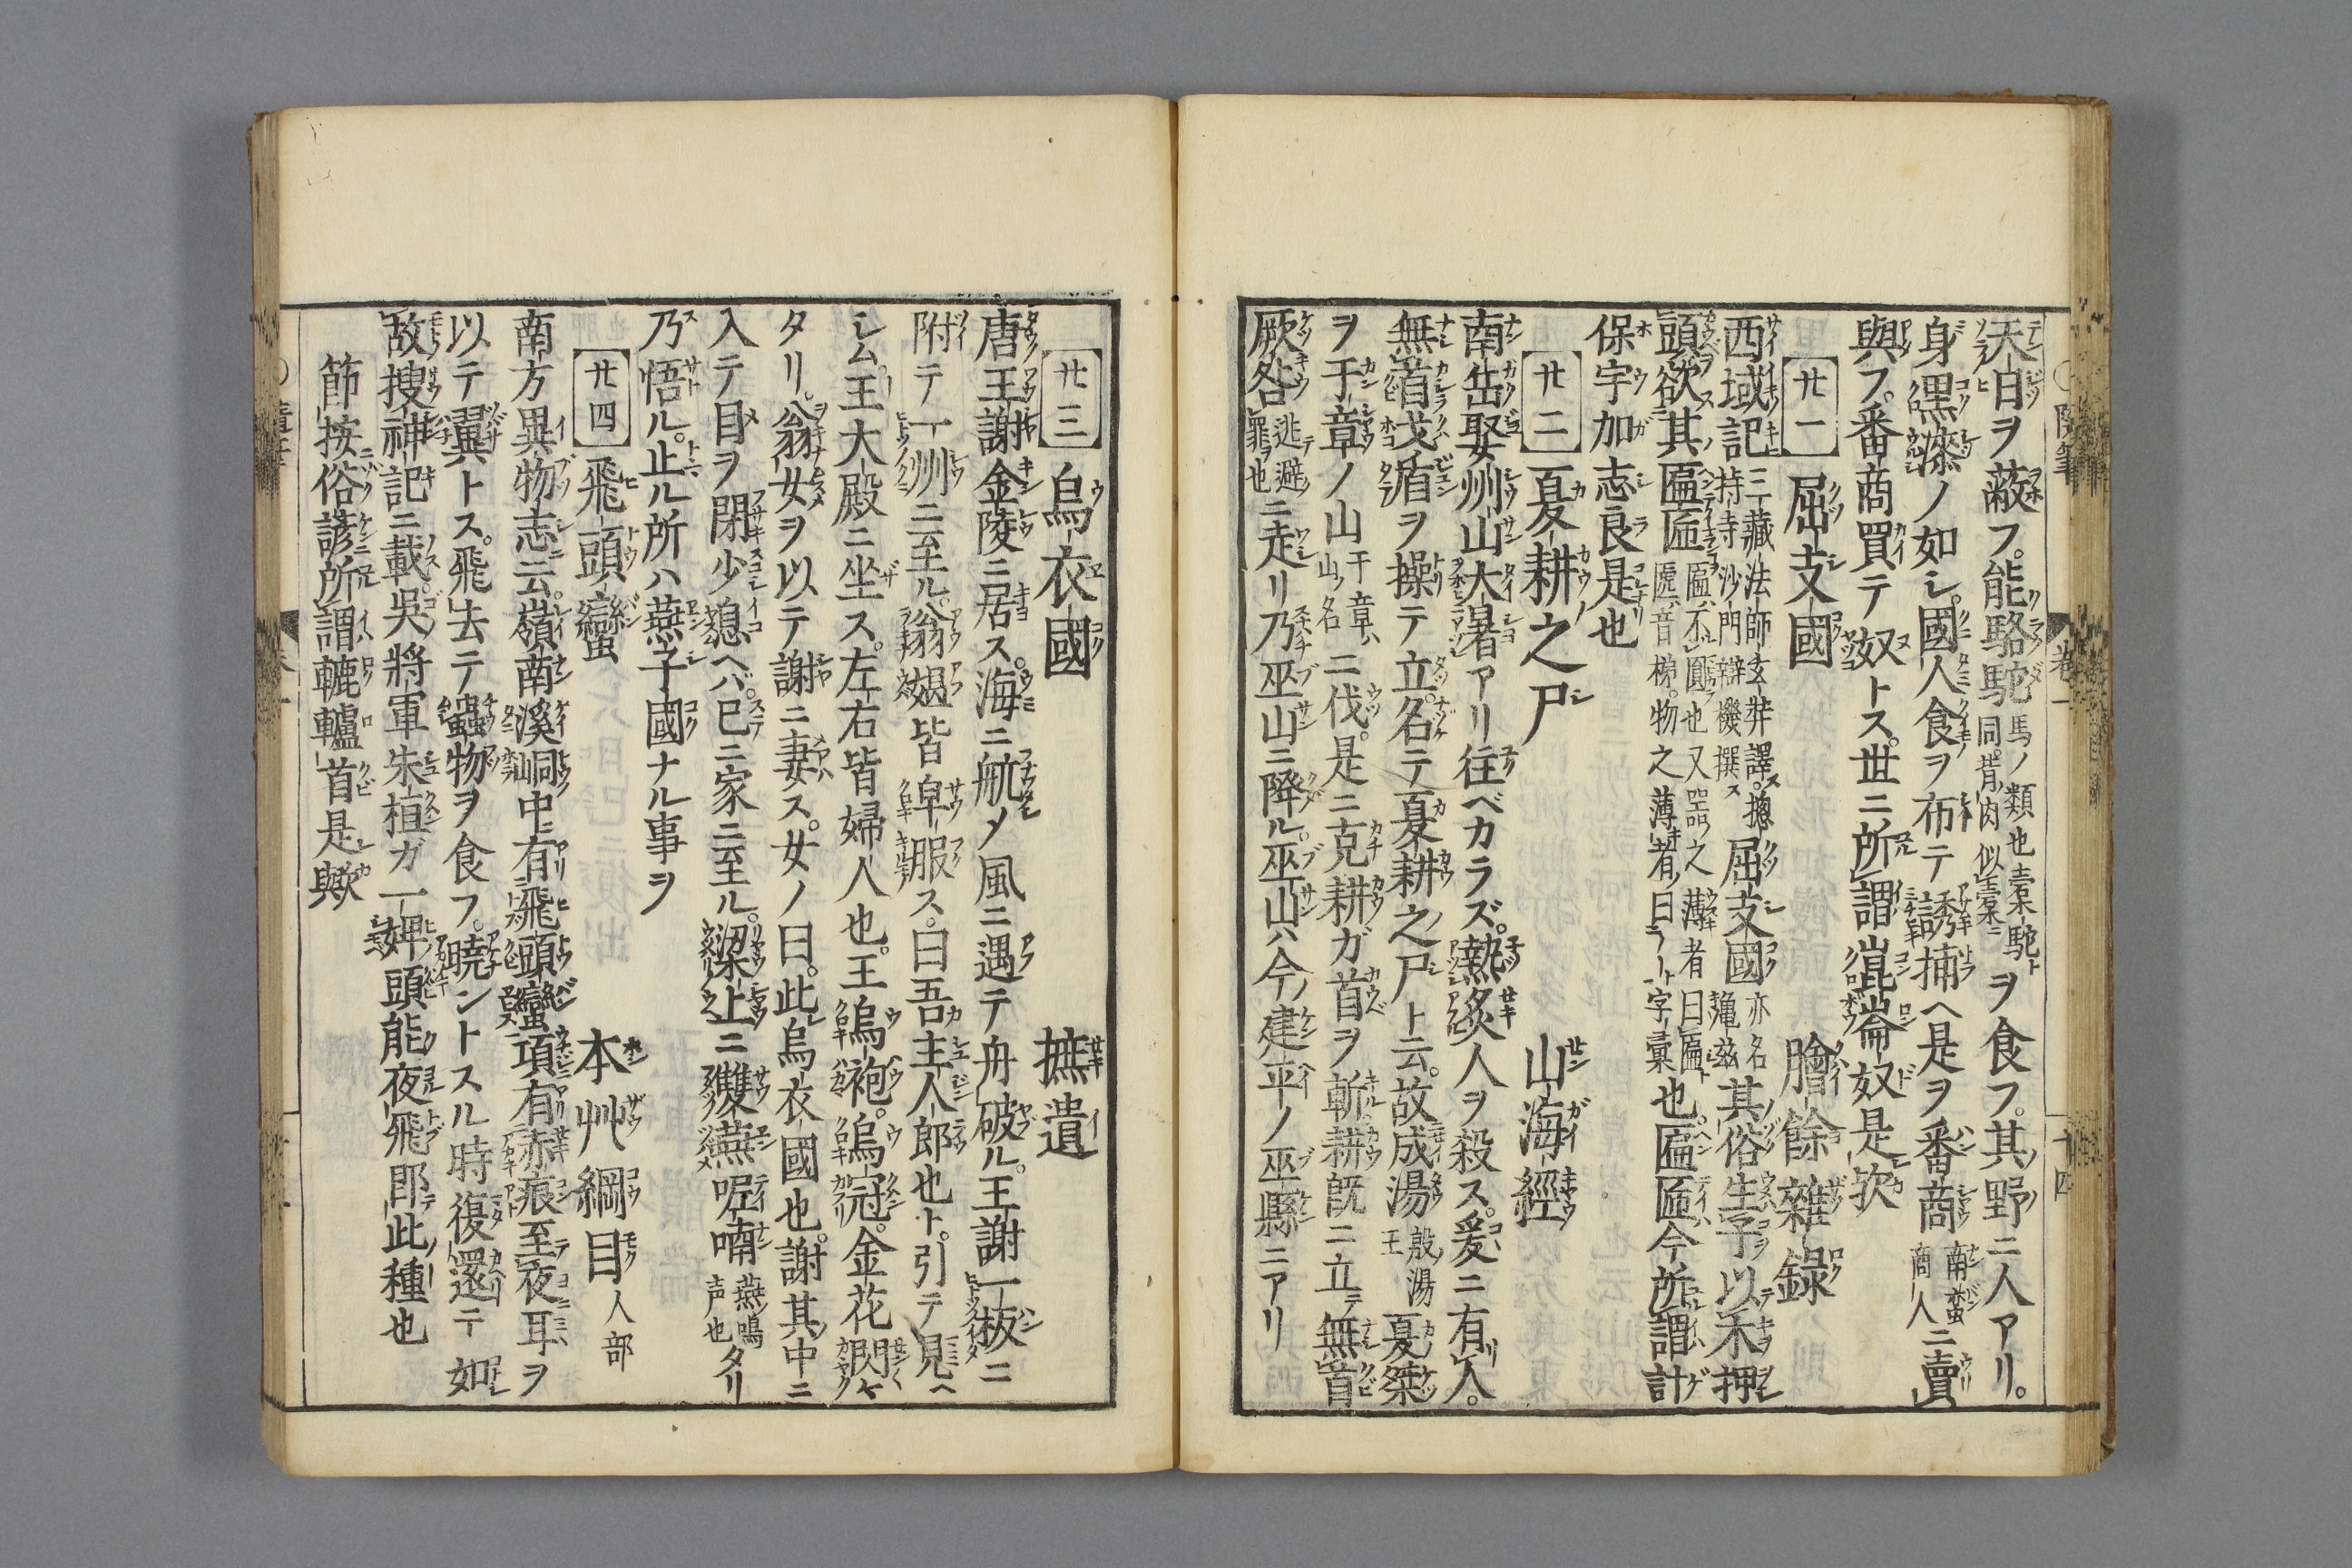 天日ヲ蔽フ。能駱駝馬ノ類也槖駝ト同背肉似槖ニヲ食フ。其野ニ人アリ。
身黒漆ノ如シ。國人食ヲ布テ誘捕ヘ是ヲ番商南蛮商人ニ賣
與フ。番商買テ奴トス。世ニ所謂崑崙奴是欤
廿一 屈支國 膾餘雜錄
西域記三藏法師玄奘譯ス摠持寺沙門辯機撰ス屈支國亦名龜兹其俗生子以木押
頭欲其匾㔸匾ハ不圓也又器之薄者曰匾ト㔸音梯物之薄者曰フト字彙也匾㔸今所謂計
保宇加志良是也
廿二 夏耕之尸 山海經
南岳娶州山大暑アリ往ベカラズ。熱炙人ヲ殺ス。爰ニ有人。
無首戈盾ヲ操テ立。名テ夏耕之尸ト云。故成湯殷湯王夏桀
ヲ于章ノ山于章ハ山ノ名ニ伐。是ニ克耕ガ首ヲ斬耕既ニ立テ無首
厥咎逃避罪ヲ也ニ走リ乃巫山ニ降ル。巫山ハ今ノ建平ノ巫縣ニアリ
廿三 烏衣國 摭遺
唐王謝金陵ニ居ス。海ニ航ノ風ニ遇テ舟破ル。王謝一板ニ
附テ一州ニ至ル。翁媼皆皁服ス。曰吾主人郎也ト。引テ見ヘ
シム王大殿ニ坐ス。左右皆婦人也。王烏袍。烏冠。金花閃ケ
タリ。翁女ヲ以テ謝ニ妻ス。女ノ曰。此烏衣國也。謝其中ニ
入テ目ヲ閉少憩ヘバ。已ニ家ニ至ル。梁上ニ雙燕呢喃燕ノ鳴声也タリ
乃悟ル。止ル所ハ燕子國ナル事ヲ
廿四 飛頭蠻 本艸綱目人部
南方異物志ニ云。嶺南溪峒中ニ有飛頭蠻項有赤痕至夜耳ヲ
以テ翼トス。飛去テ蟲物ヲ食フ。曉ントスル時復還テ如
故搜神記ニ載。吳將軍朱桓ガ一婢頭能夜飛即此種也
節按俗諺所謂轆轤首是歟